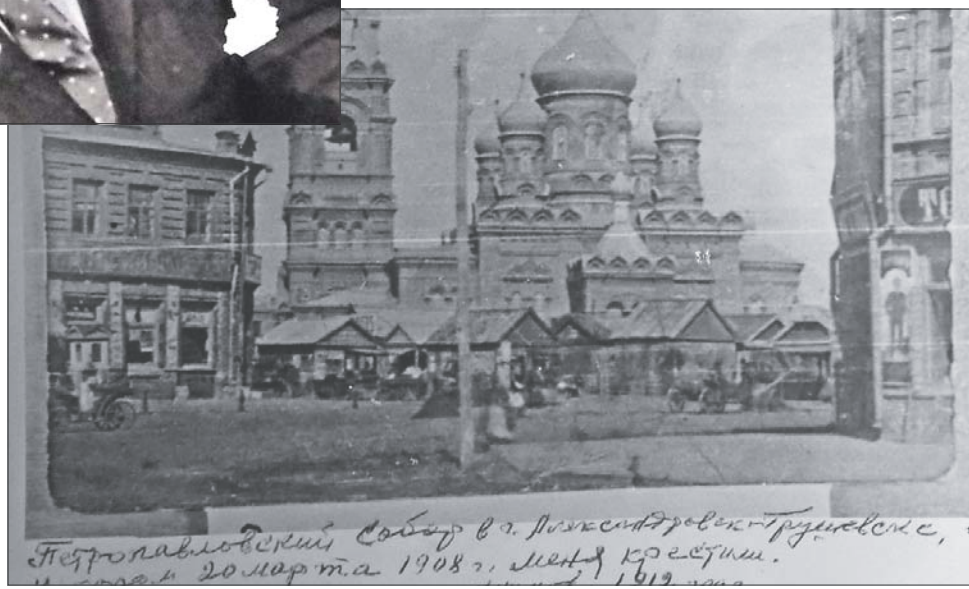 ТО
Петропавловский Собор в г. Александровск-Грушевске,
в котором 20 марта 1908 г. меня крестили.
1912